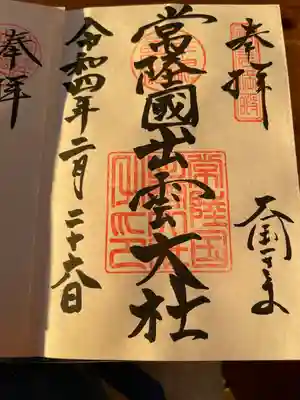 奉拝
大国さま
常陸國出雲大社
令和四年二月二十六日
奉拝